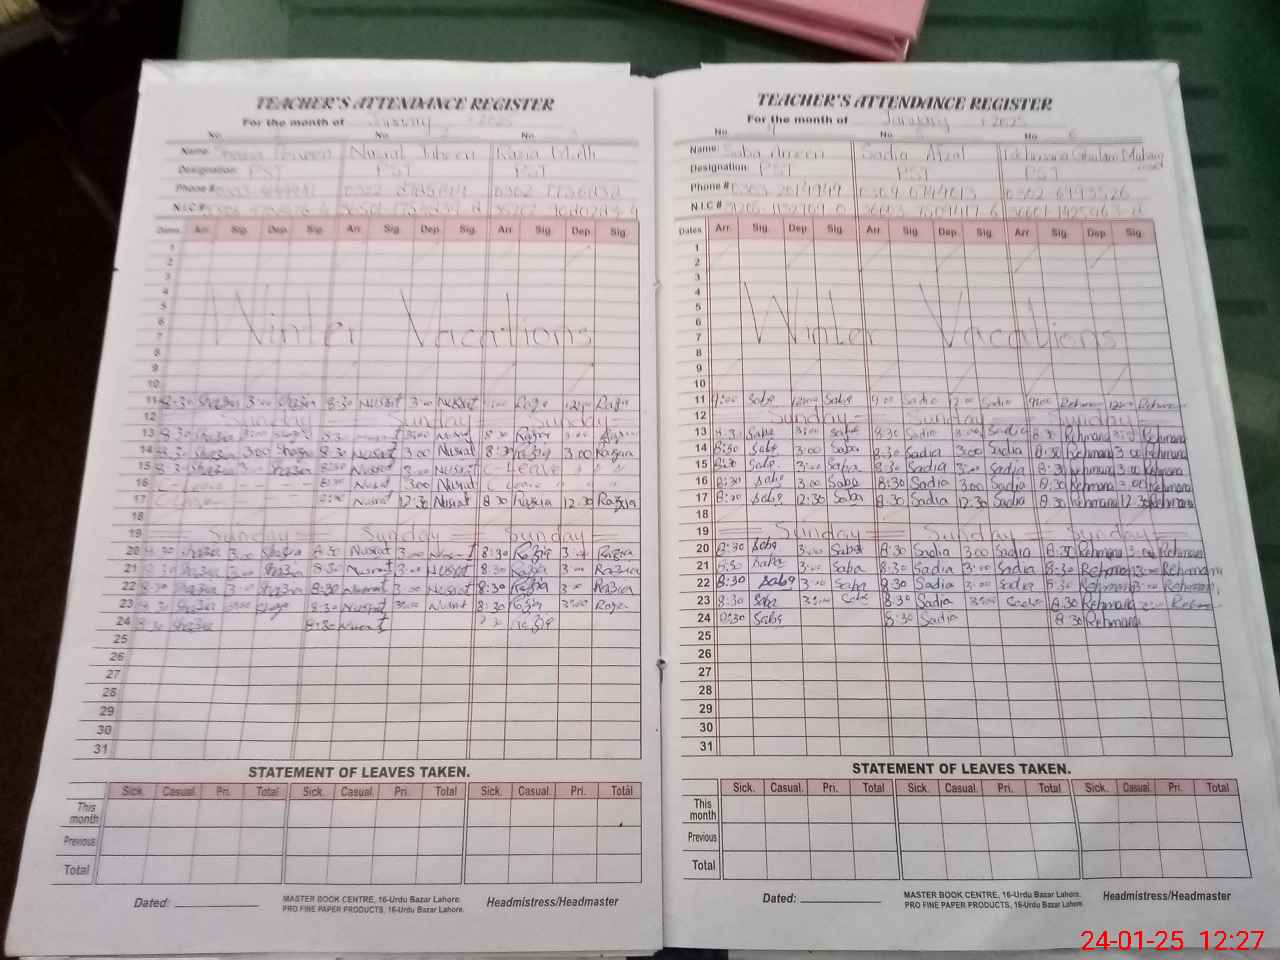 TEACHER'S ATTENDANCE REGISTER
For the month of January 2025
No. No. No.
Name: Nusrat Jabeen Razia
Designation: PST PST PST
Phone #
N.I.C#
Dates Arr. Sig. Dep. Sig. Arr. Sig. Dep. Sig. Arr. Sig. Dep. Sig.
1
2
3
4
5
6
7
Winter Vacations
8
9
10
11 8:30 Shazia 3:00 Shazia 8:30 Nusrat 3:00 Nusrat Razia 12:00 Razia
12 Sunday Sunday Sunday
13 8:30 Shazia 3:00 Shazia Nusrat 3:00 Nusrat 8:30 Razia 3:00
14 8:30 Shazia 3:00 Shazia 8:30 Nusrat 3:00 Nusrat 8:30 Razia 3:00 Razia
15 8:30 Shazia 3:00 Shazia 8:30 Nusrat 3:00 Nusrat C-Leave
16 Leave 8:30 Nusrat 3:00 Nusrat C Leave
17 Nusrat 12:30 Nusrat 8:30 Razia 12:30 Razia
18
19 Sunday Sunday Sunday
20 8:30 Shazia 3:00 Shazia 8:30 Nusrat 3:00 Nusrat 8:30 Razia 3:00 Razia
21 8:30 Shazia 3:00 Shazia 8:30 Nusrat 3:00 Nusrat 8:30 Razia 3:00 Razia
22 8:30 Shazia 3:00 Shazia 8:30 Nusrat 3:00 Nusrat 8:30 Razia 3:00 Razia
23 8:30 Shazia 3:00 Shazia 8:30 Nusrat 3:00 Nusrat 8:30 Razia 3:00 Razia
24 8:30 Shazia 8:30 Nusrat Razia
25
26
27
28
29
30
31
STATEMENT OF LEAVES TAKEN.
Sick. Casual. Pri. Total Sick. Casual. Pri. Total Sick. Casual. Pri. Total
This month
Previous
Total
Dated: MASTER BOOK CENTRE, 16-Urdu Bazar Lahore. Headmistress/Headmaster
PRO FINE PAPER PRODUCTS, 16-Urdu Bazar Lahore.
TEACHER'S ATTENDANCE REGISTER
For the month of January 2025
No. No. No. 6
Name: Saba Ameen Sadia Afzal Ghulam
Designation: PST PST PST
Phone #
N.I.C#
Dates Arr. Sig. Dep. Sig. Arr. Sig. Dep. Sig. Arr. Sig. Dep. Sig.
1
2
3
4
5
6
7
Winter Vacations
8
9
10
11 9:00 Saba 12:00 Saba 9:00 Sadia Sadia 9:00 Rehmana 12:00 Rehmana
12 Sunday Sunday Sunday
13 8:30 Saba 3:00 Saba 8:30 Sadia 3:00 Sadia 8:30 Rehmana 3:00 Rehmana
14 8:30 Saba 3:00 Saba 8:30 Sadia 3:00 Sadia 8:30 Rehmana 3:00 Rehmana
15 8:30 Saba 3:00 Saba 8:30 Sadia 3:00 Sadia 8:30 Rehmana 3:00 Rehmana
16 8:30 Saba 3:00 Saba 8:30 Sadia 3:00 Sadia 8:30 Rehmana 3:00 Rehmana
17 8:30 Saba 12:30 Saba 8:30 Sadia 12:30 Sadia 8:30 Rehmana 12:30 Rehmana
18
19 Sunday Sunday Sunday
20 8:30 Saba 3:00 Saba 8:30 Sadia 3:00 Sadia 8:30 Rehmana 3:00 Rehmana
21 8:30 Saba 3:00 Saba 8:30 Sadia 3:00 Sadia 8:30 Rehmana 3:00 Rehmana
22 8:30 Saba 3:00 Saba 8:30 Sadia 3:00 Sadia 8:30 Rehmana 3:00 Rehmana
23 8:30 Saba 3:00 Saba 8:30 Sadia 3:00 Sadia 8:30 Rehmana 3:00 Rehmana
24 8:30 Saba 8:30 Sadia 8:30 Rehmana
25
26
27
28
29
30
31
STATEMENT OF LEAVES TAKEN.
Sick. Casual. Pri. Total Sick. Casual. Pri. Total Sick. Casual. Pri. Total
This month
Previous
Total
Dated: MASTER BOOK CENTRE, 16-Urdu Bazar Lahore. Headmistress/Headmaster
PRO FINE PAPER PRODUCTS, 16-Urdu Bazar Lahore.
24-01-25 12:27